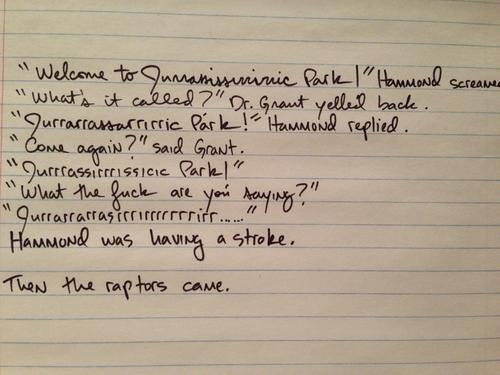 "Welcome to Jurrassissirirric Park!" Hammond screamed
"What's it called?" Dr. Grant yelled back.
"Jurrarrassarrirric Park!" Hammond replied.
"Come again?" said Grant.
"Jurrrassirrrissicic Park!"
"What the fuck are you saying?"
"Jurrarrarrasrrrirrrrrrrirr....."
Hammond was having a stroke.
Then the raptors came.